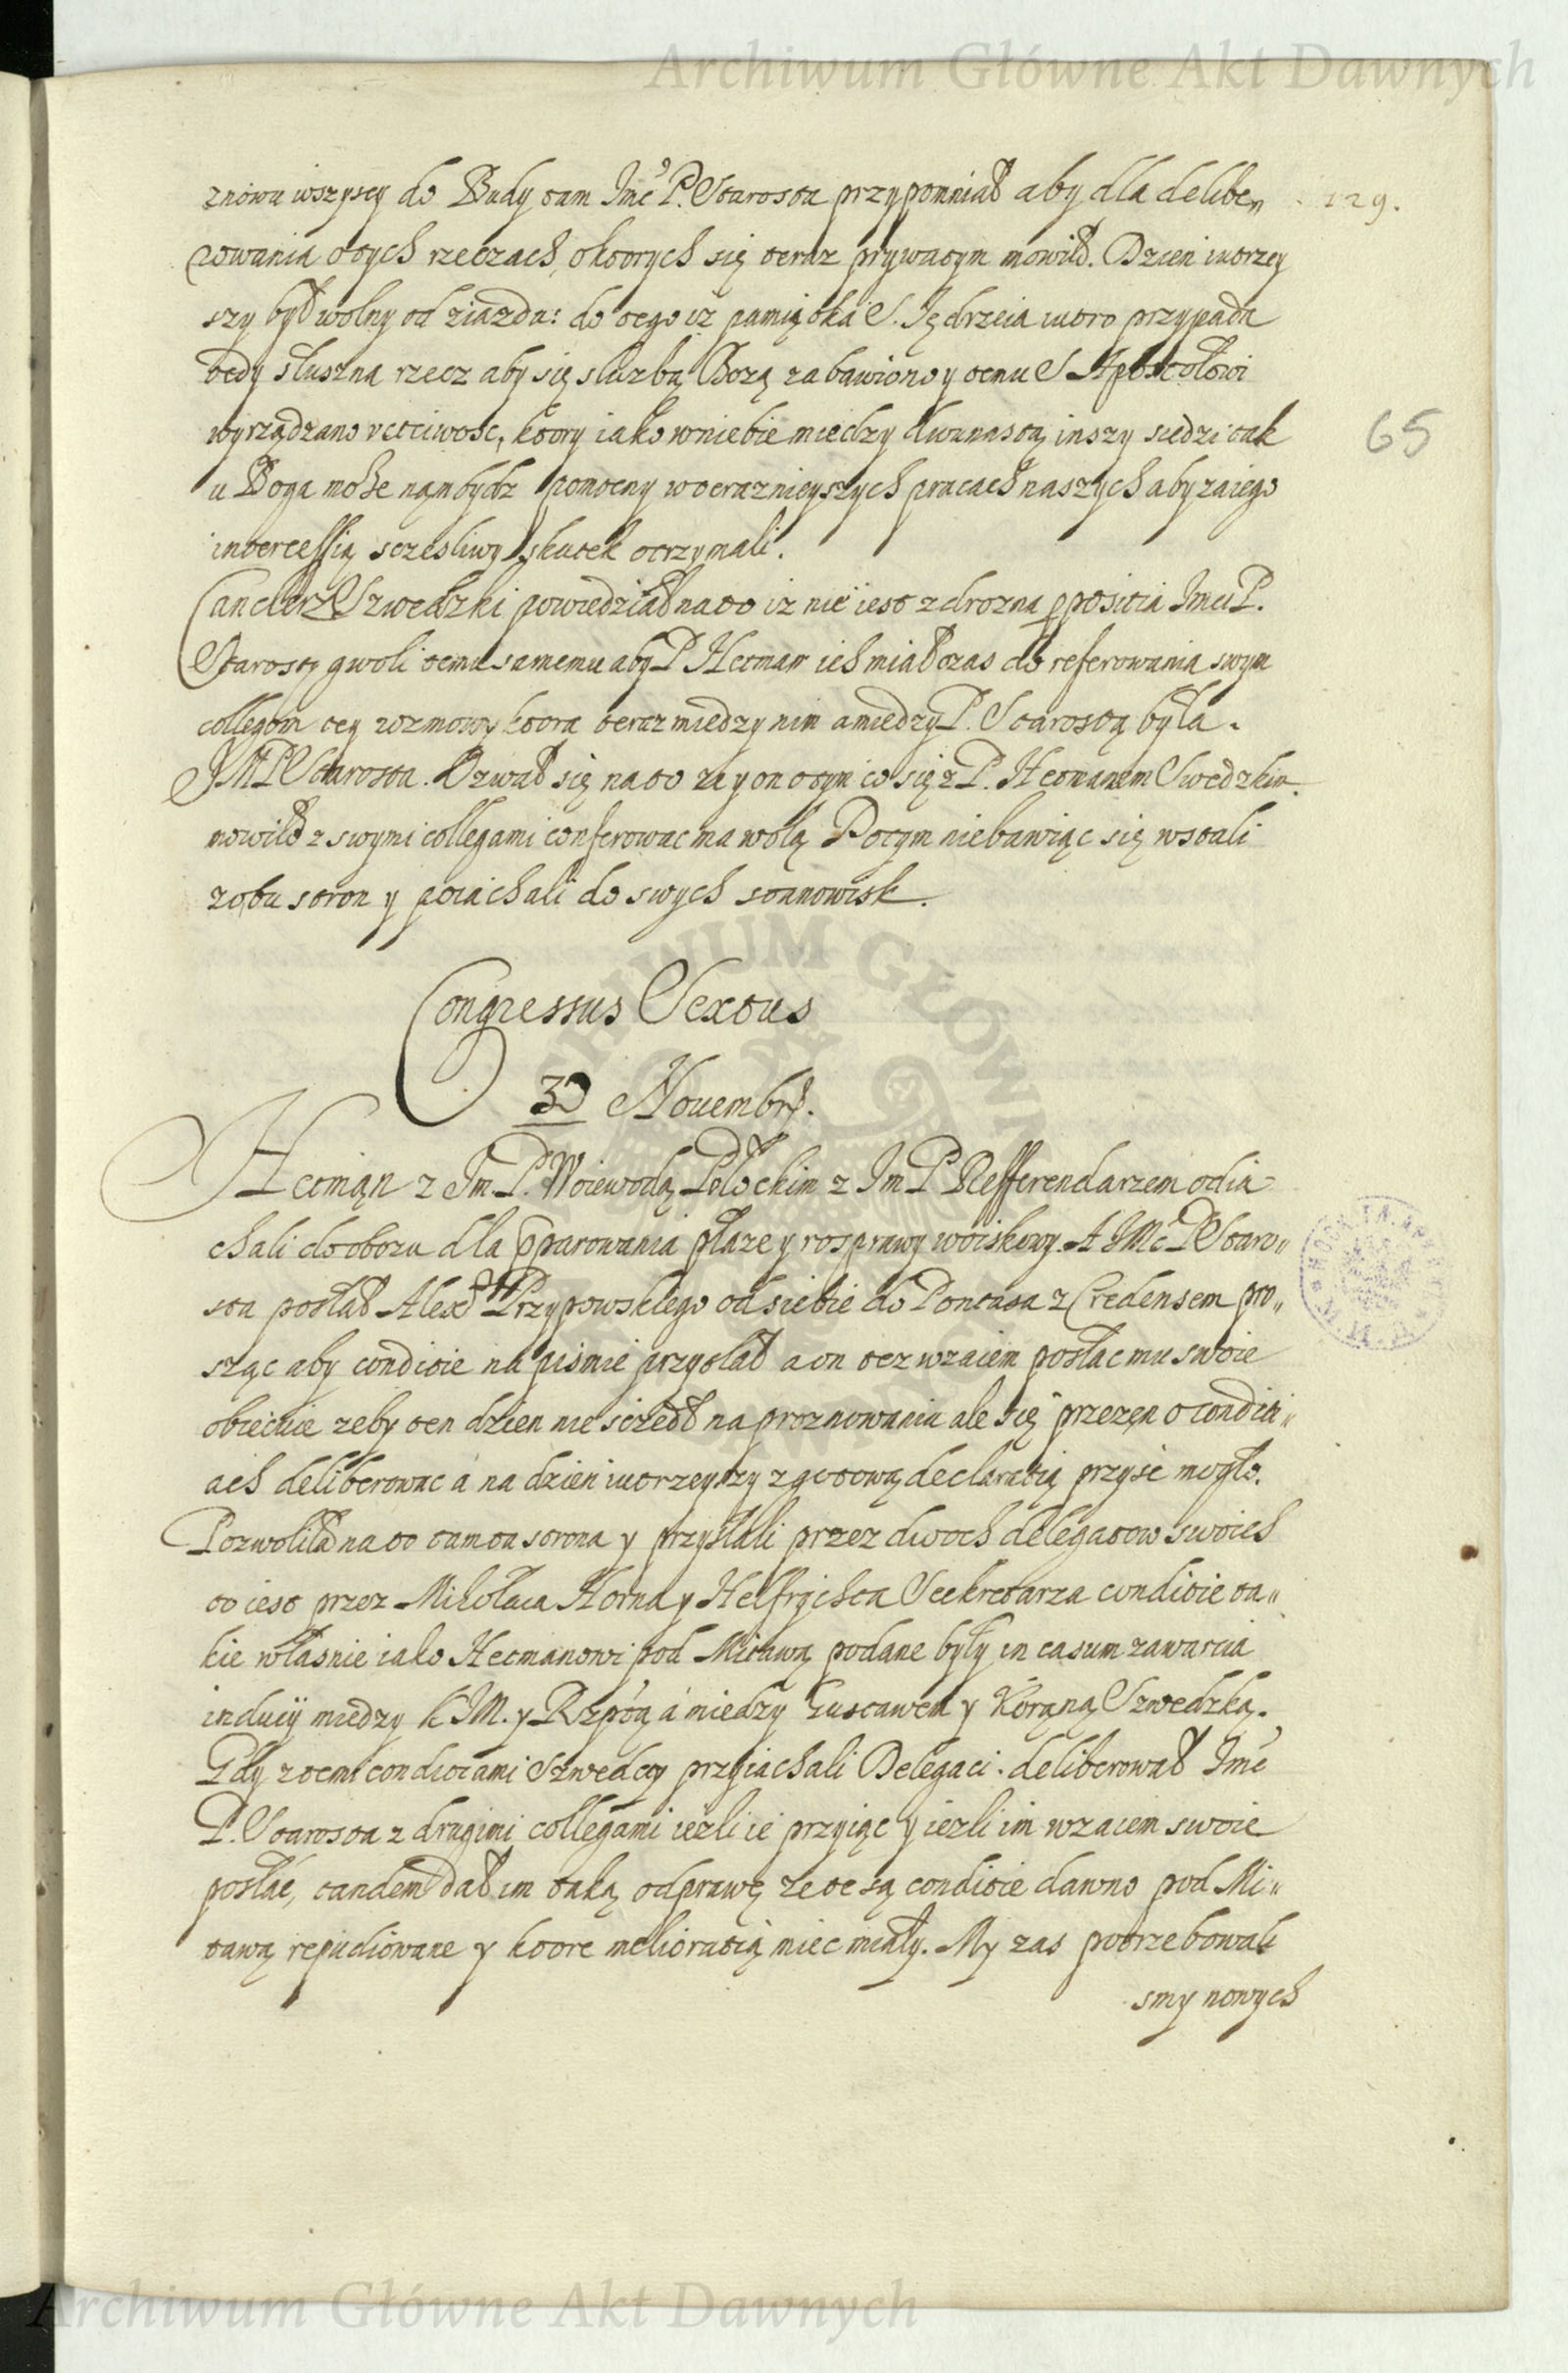 Archiwum Główne Akt Dawnych
znowu wszyscy do Budy tam Imć P. Starosta przypomniał aby dla delibe„
129.
rowania o tych rzeczach, o ktorych się teraz prywatym mowiło. Dzien iutrzey
szy był wolny od ziazdu: do tego iż pamiątka S. Jędrzeia iutro przypada
tedy słuszna rzecz aby się służbą Bożą zabawiono y temu S Apostołowi
wyrządzano vctciwość, ktory iako w niebie miedzy dwunastą inszy siedzi tak
65
u Boga może nąm bydz pomocny w teraznieyszych pracach naszych aby za iego
intercessią sczesliwy skutek otrzymali.
Canclerz Szwedzki powiedział na to iz nie iest zdrożna ppositia Imci P.
Starosty gwoli temu samemu aby P Hetman ich miał czas do referowania swym
collegom tey rozmowy ktora teraz miedzy nim a miedzy P. Starostą była.
JMP Starosta. Ozwał się na to za y on o tym co się z P. Hetmanem Swedzkim
mowiło z swymi collegami conferowac ma wolą Potym niebawiąc się wstali
z obu stron y poiachali do swych stanowisk.
Congressus Sextus
30 Nouembrs.
Hetmąn z Im. P. Woiewodą Połockim z Im P Refferendarzem odia
chali do obozu dla pparowania płace y rosprawy woiskowy. A IMć P Staro„
sta posłał Alexd Przypowskiego od siebie do Pontusa z Credensem pro„
sząc aby conditie na pismie przysłał a on tez wzaiem posłac mu swoie
obiecuie zeby ten dzien nie szczedł na proznowaniu ale się przezeń o condia„
ach deliberowac á na dzien iutrzeyszy z gotową declaratią przysć mogło.
Pozwoliła na to tamta strona y przysłali przez dwoch delegatow swoich
to iest przez Mikołaia Horna y Helfrychta Seekretarza conditie ta„
kie własnie iako Hetmanowi pod Mitawą podane były in casum zawarcia
induciÿ miedzy K JM. y Rzptą á miedzy Gustawem y Koroną Szwedzką.
Gdy z temi conditiami Szwedcy przyiachali Delegaci. deliberował Imć
P. Starosta z drugimi collegami iezli ie przyiąc y iezli im wzaiem swoie
posłać, tandem dał im taką odprawę ze te są conditie dawno pod Mi„
tawą repudiowane y ktore melioratią miec miały. My zas potrzebowali
smy nowych
Archiwum Główne Akt Dawnych